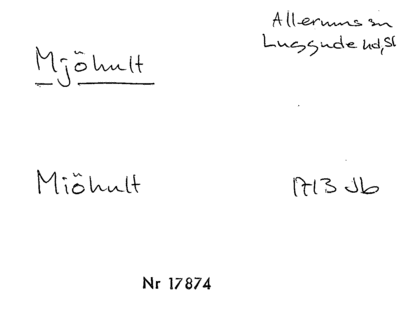 Allerums sn
Luggude hd, Sk
Mjöhult
Miöhult 1713 Jb
Nr 17874